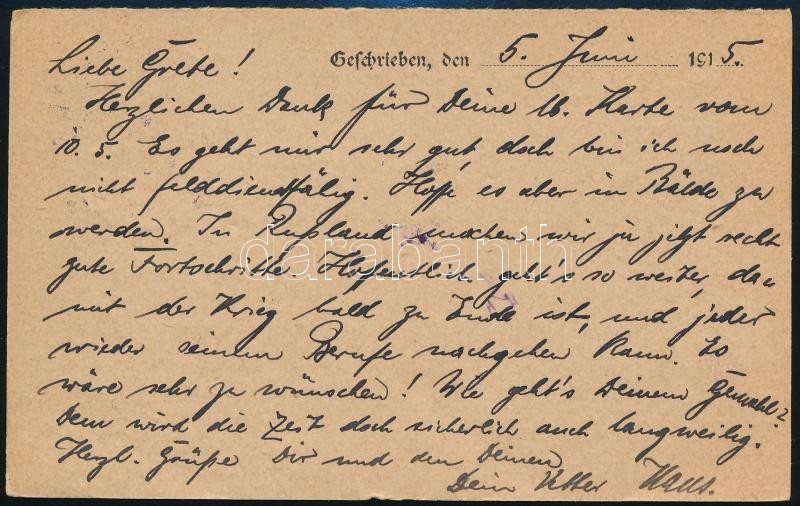 Geschrieben, den 5. Juni 1915.
Liebe Grete!
Herzlichen Dank für Deine lb. Karte vom
10. 5. Es geht mir sehr gut, doch bin ich noch
nicht felddienstfähig. Hoffe es aber in Bälde zu
werden. In Rußland machens wir ja jetzt recht
gute Fortschritte. Hoffentlich geht's so weiter, da-
mit der Krieg bald zu Ende ist, und jeder
wieder seinem Berufe nachgehen kann. Es
wäre sehr zu wünschen! Wie geht's Deinem Gemahl?
Dem wird die Zeit doch sicherlich auch langweilig.
Herzl. Grüße Dir und den Deinen
Dein Vetter Hans.
darabanth